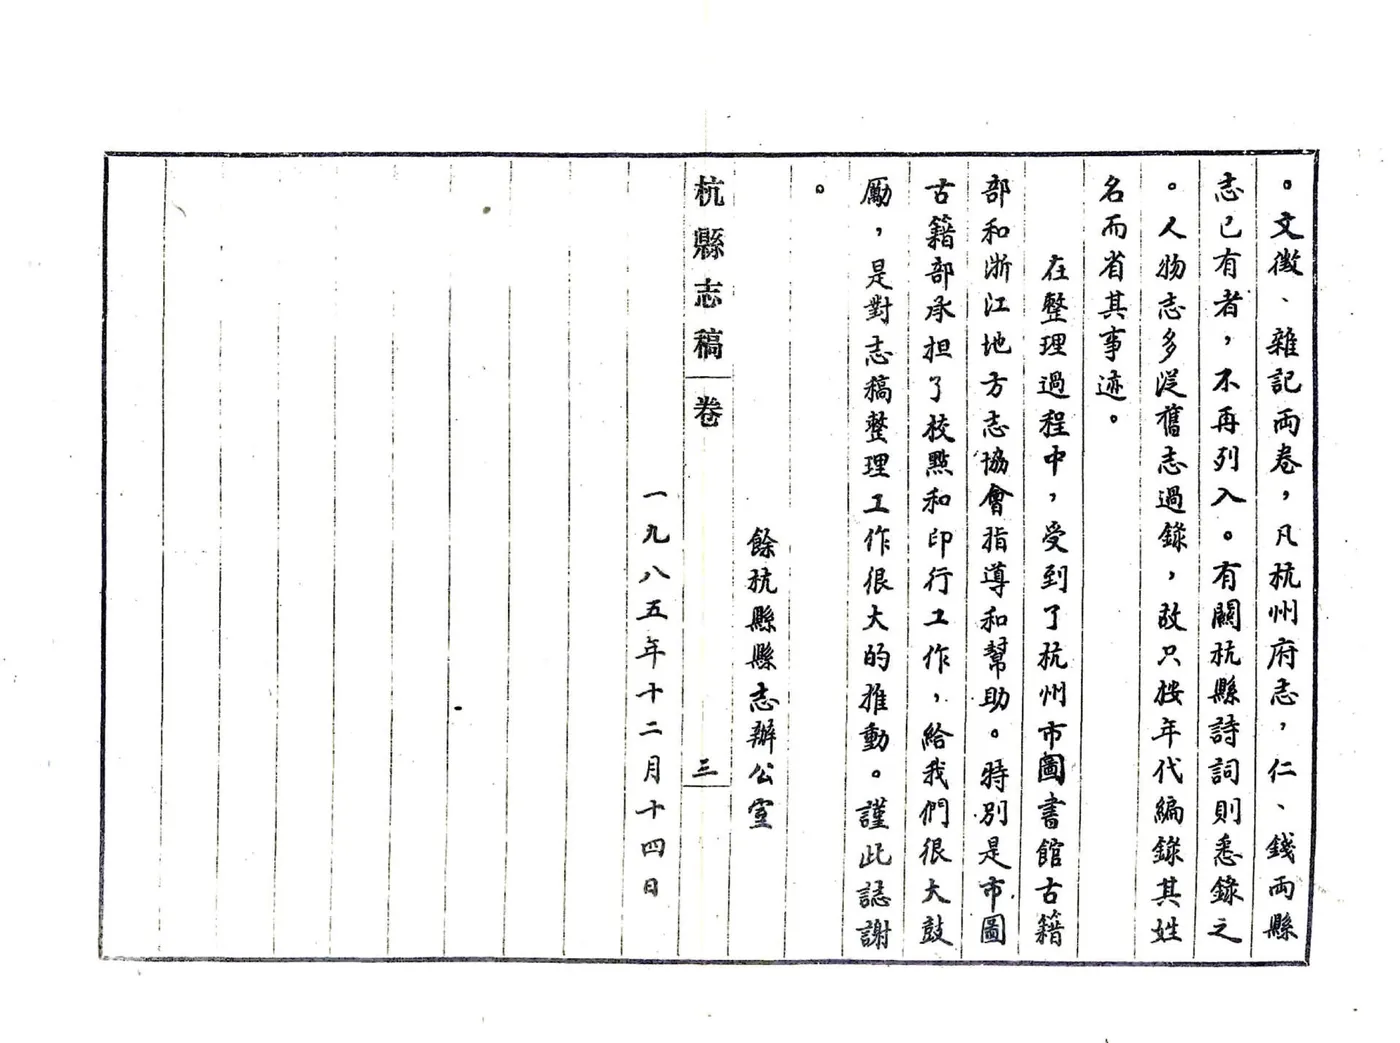 。文徵、雜記両卷，凡杭州府志，仁、錢両縣
志已有者，不再列入。有關杭縣詩詞則悉錄之
。人物志多從舊志過錄，故只按年代編錄其姓
名而省其事迹。
在整理過程中，受到了杭州市圖書館古籍
部和浙江地方志協會指導和幫助。特別是市圖
古籍部承担了校點和印行工作，給我們很大鼓
勵，是對志稿整理工作很大的推動。謹此誌謝
。
餘杭縣縣志辦公室
杭縣志稿 卷 三
一九八五年十二月十四日